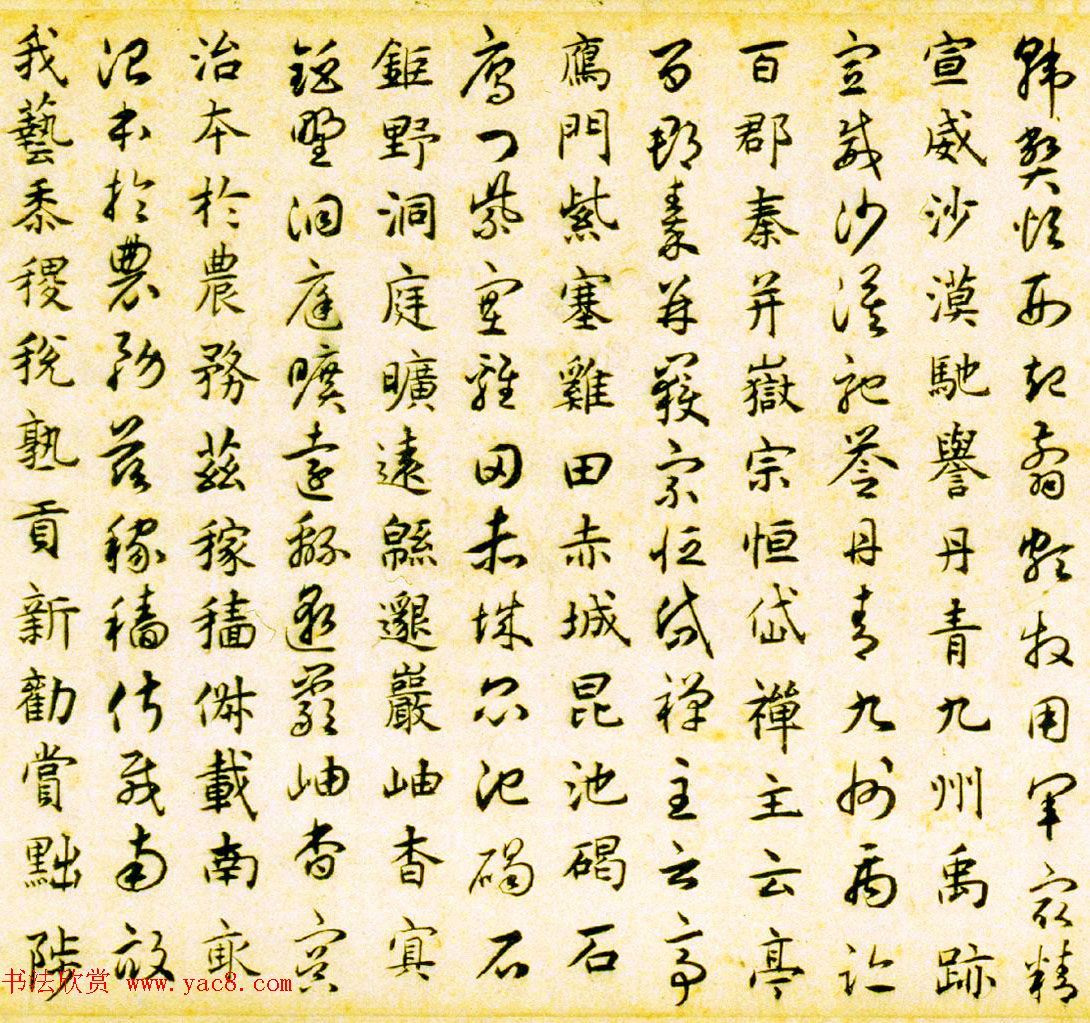 韓弊煩刑起翦頗牧用軍最精
宣威沙漠馳譽丹青九州禹跡
宣威沙漠馳譽丹青九州禹跡
百郡秦并嶽宗恒岱禪主云亭
百郡秦并嶽宗恒岱禪主云亭
鴈門紫塞雞田赤城昆池碣石
鴈門紫塞雞田赤城昆池碣石
鉅野洞庭曠遠緜邈巖岫杳冥
鉅野洞庭曠遠緜邈巖岫杳冥
治本於農務茲稼穡俶載南畝
治本於農務茲稼穡俶載南畝
我藝黍稷稅熟貢新勸賞黜陟
书法欣赏 www.yac8.com